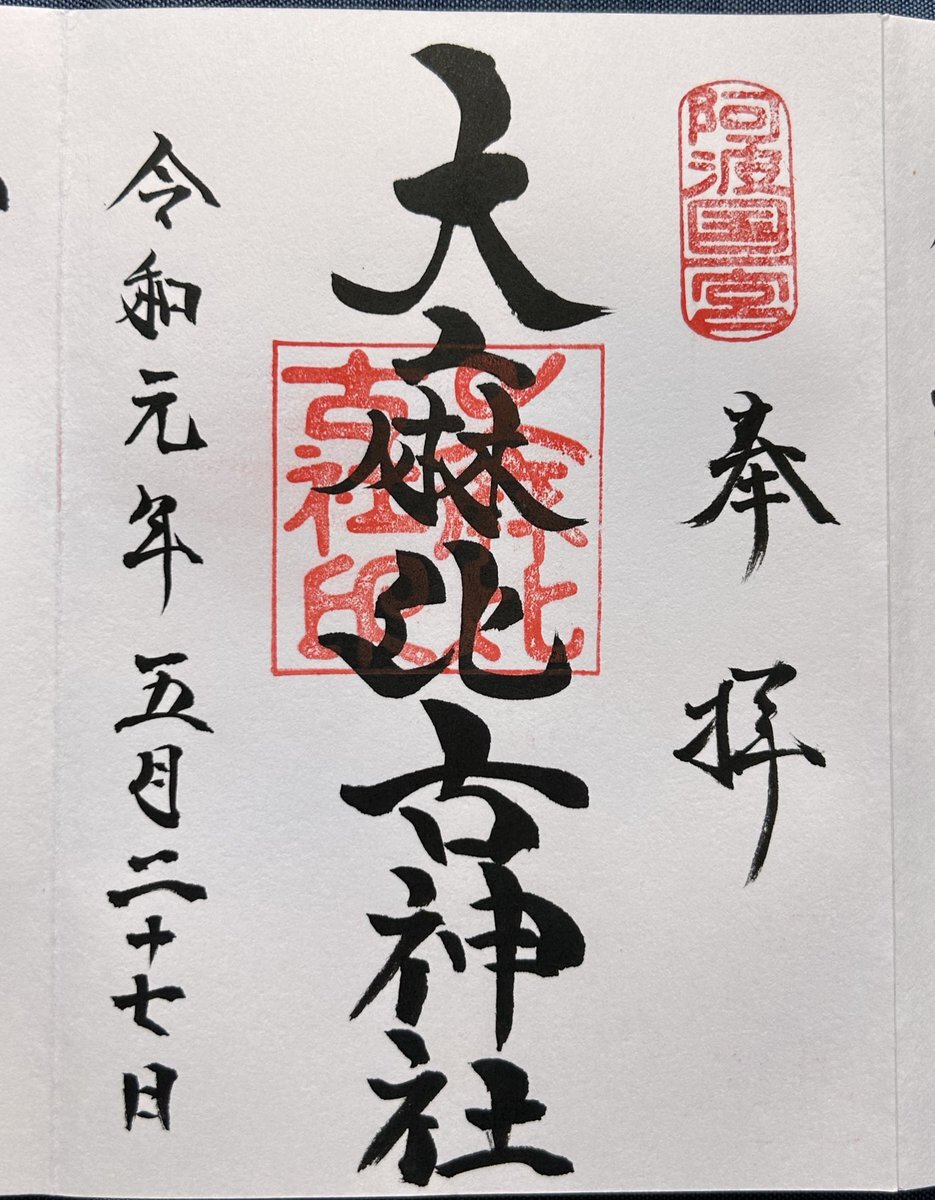 阿波国一宮
奉拝
大麻比古神社
大麻比
古社印
令和元年五月二十七日